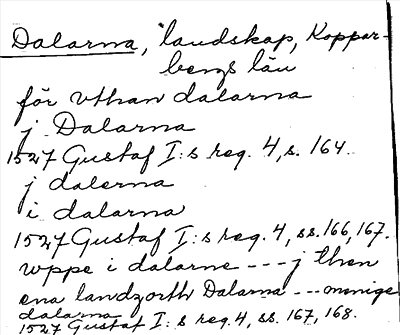 Dalarna, landskap, Koppar-
bergs län
för vthan dalarna
j Dalarna
1527 Gustaf I:s reg. 4, s. 164.
j dalerna
i dalarna
1527 Gustaf I:s reg. 4, ss. 166, 167.
wppe i dalarne --- j then
ena landzorth Dalarna --- menige
dalarna
1527 Gustaf I:s reg. 4, ss. 167, 168.